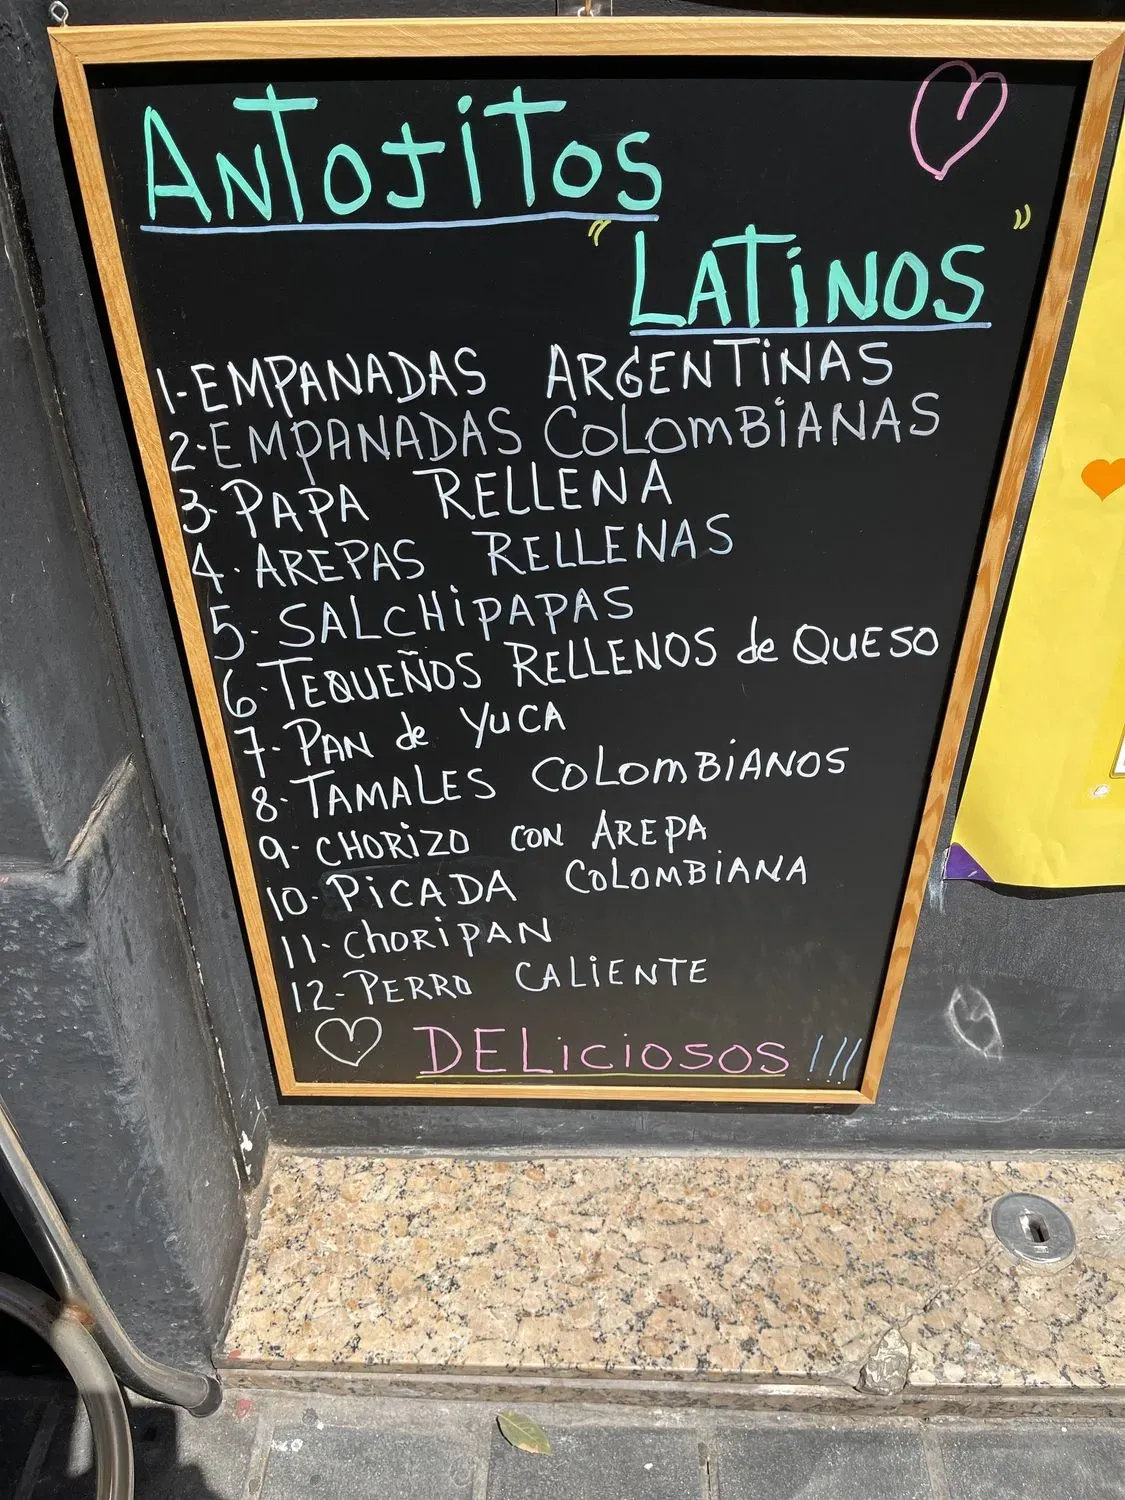 ANTOJiTOS
"LATiNOS"
1-EMPANADAS ARGENTiNAS
2-EMPANADAS COLOMBiANAS
3-PAPA RELLENA
4. AREPAS RELLENAS
5. SALCHiPAPAS
6. TEQUEÑOS RELLENOS de QUESO
7-PAN de YUCA
8. TAMALES COLOMBiANOS
9. CHORiZO CON AREPA
10. PiCADA COLOMBiANA
11-CHORiPAN
12-PERRO CALiENTE
DELiciosos !!!